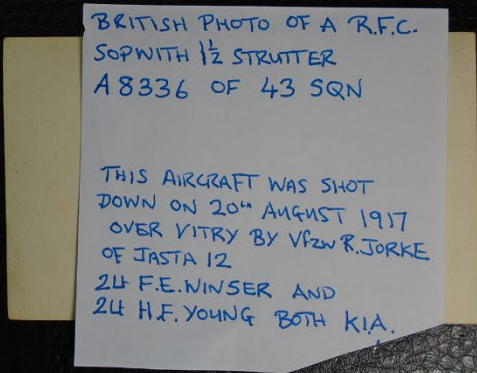 BRITISH PHOTO OF A R.F.C.
SOPWITH 1½ STRUTTER
A8336 OF 43 SQN
THIS AIRCRAFT WAS SHOT
DOWN ON 20th AUGUST 1917
OVER VITRY BY Vfzw R.JORKE
OF JASTA 12
2Lt F.E.WINSER AND
2Lt H.F.YOUNG BOTH KIA.